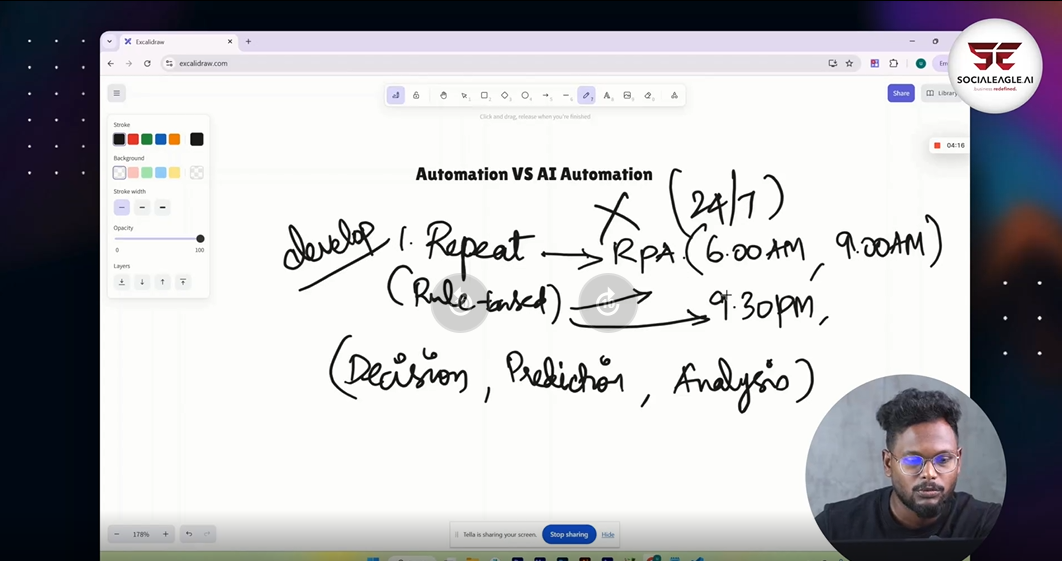 Excalidraw
excalidraw.com
SOCIALEAGLE AI
business redefined.
Share
Library
Click and drag, release when you're finished
04:16
Stroke
Background
Stroke width
Opacity
0 100
Layers
Automation VS AI Automation
(24/7)
develop 1. Repeat → RPA. (6.00AM, 9.00AM)
(Rule-based) → 9.30PM,
(Decision, Prediction, Analysis)
178%
Tella is sharing your screen.
Stop sharing
Hide